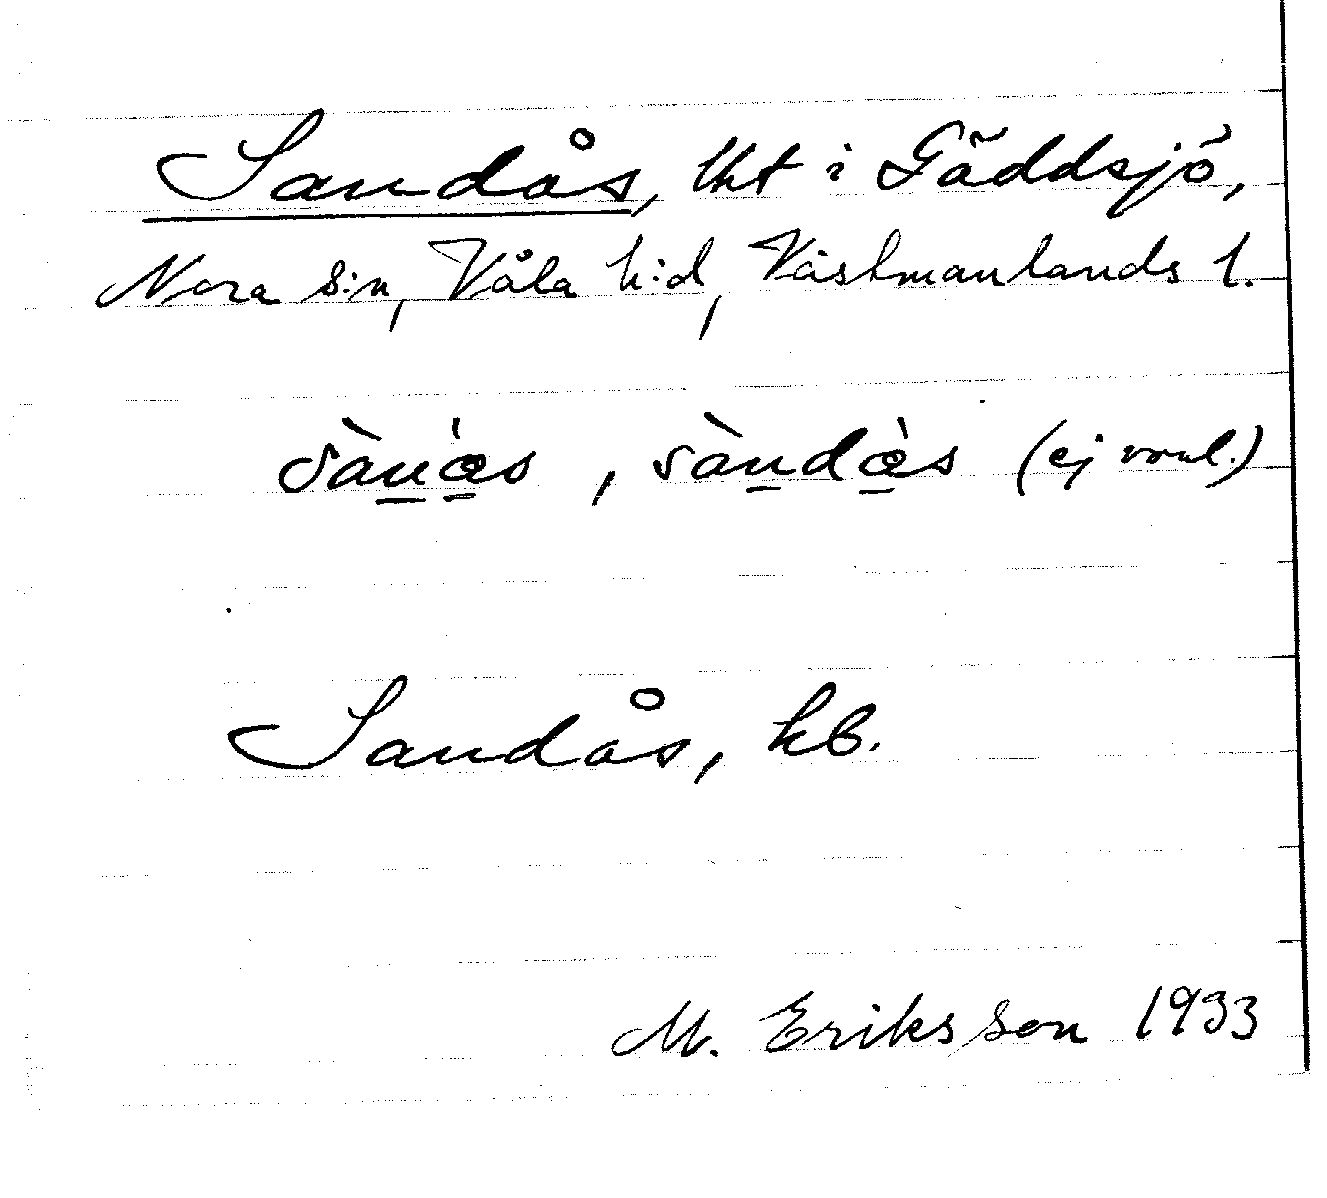 Sandås, lht i Gäddsjö,
Nora s:n, Våla h:d, Västmanlands l.
sànàs, sàndàs (ej vanl.)
Sandås, kb.
M. Eriksson 1933